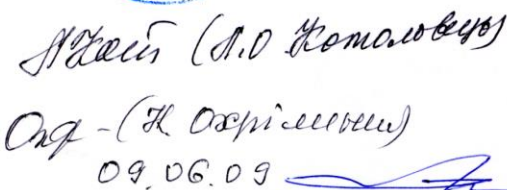 (Л.О. Котоловець)
(Н. Охрімення)
09.06.09